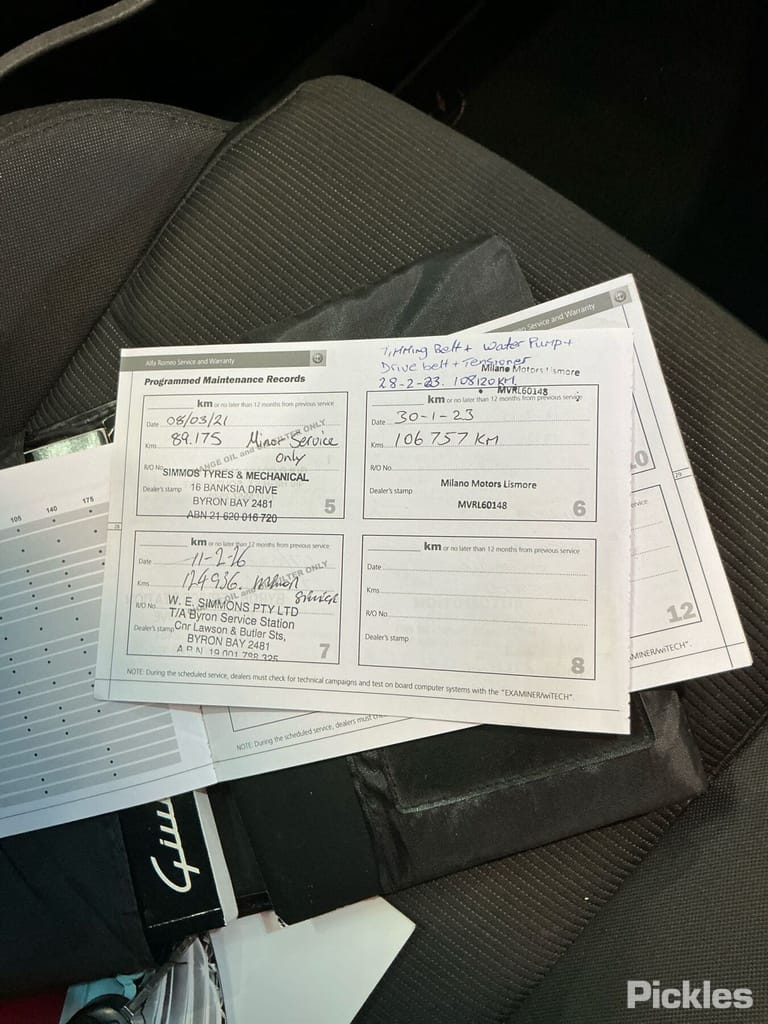 Alfa Romeo Service and Warranty
Programmed Maintenance Records
Timming Belt + Water Pump +
Drive belt + Tensioner
Milano Motors Lismore
28-2-23. 108120KM
MVRL60148
km or no later than 12 months from previous service
Date 08/03/21
Kms 89.175 Minor Service
only
CHANGE OIL and FILTER ONLY
R/O No.
SIMMOS TYRES & MECHANICAL
Dealer's stamp 16 BANKSIA DRIVE
BYRON BAY 2481
ABN 21 620 016 720
5
km or no later than 12 months from previous service
Date 30-1-23
Kms 106757 KM
R/O No.
Dealer's stamp Milano Motors Lismore
MVRL60148
6
km or no later than 12 months from previous service
Date 11-2-26
Kms 124936.
service
CHANGE OIL and FILTER ONLY
R/O No.
W. E. SIMMONS PTY LTD
T/A Byron Service Station
Dealer's stamp Cnr Lawson & Butler Sts,
BYRON BAY 2481
A.B.N. 19 001 798 325
7
km or no later than 12 months from previous service
Date
Kms
R/O No.
Dealer's stamp
8
NOTE: During the scheduled service, dealers must check for technical campaigns and test on board computer systems with the "EXAMINER/wiTECH".
28
Service and Warranty
10
29
service
12
MINER/wiTECH".
105 140 175
NOTE: During the scheduled service, dealers must
Giu
Pickles